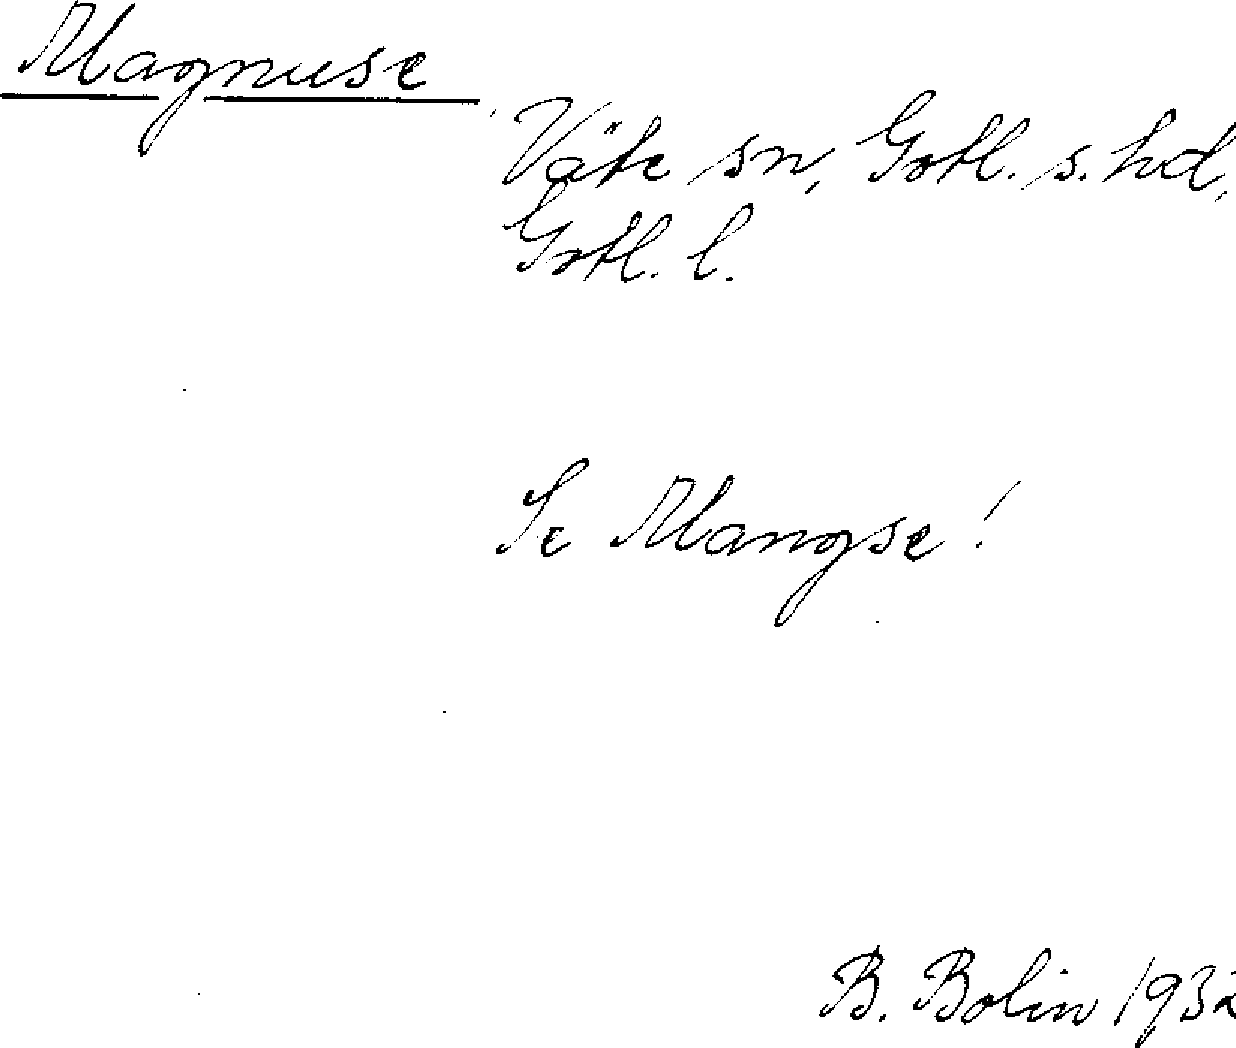 Magnuse
Väte sn, Gotl. s. hd,
Gotl. l.
Se Mangse!
B. Bolin 1932